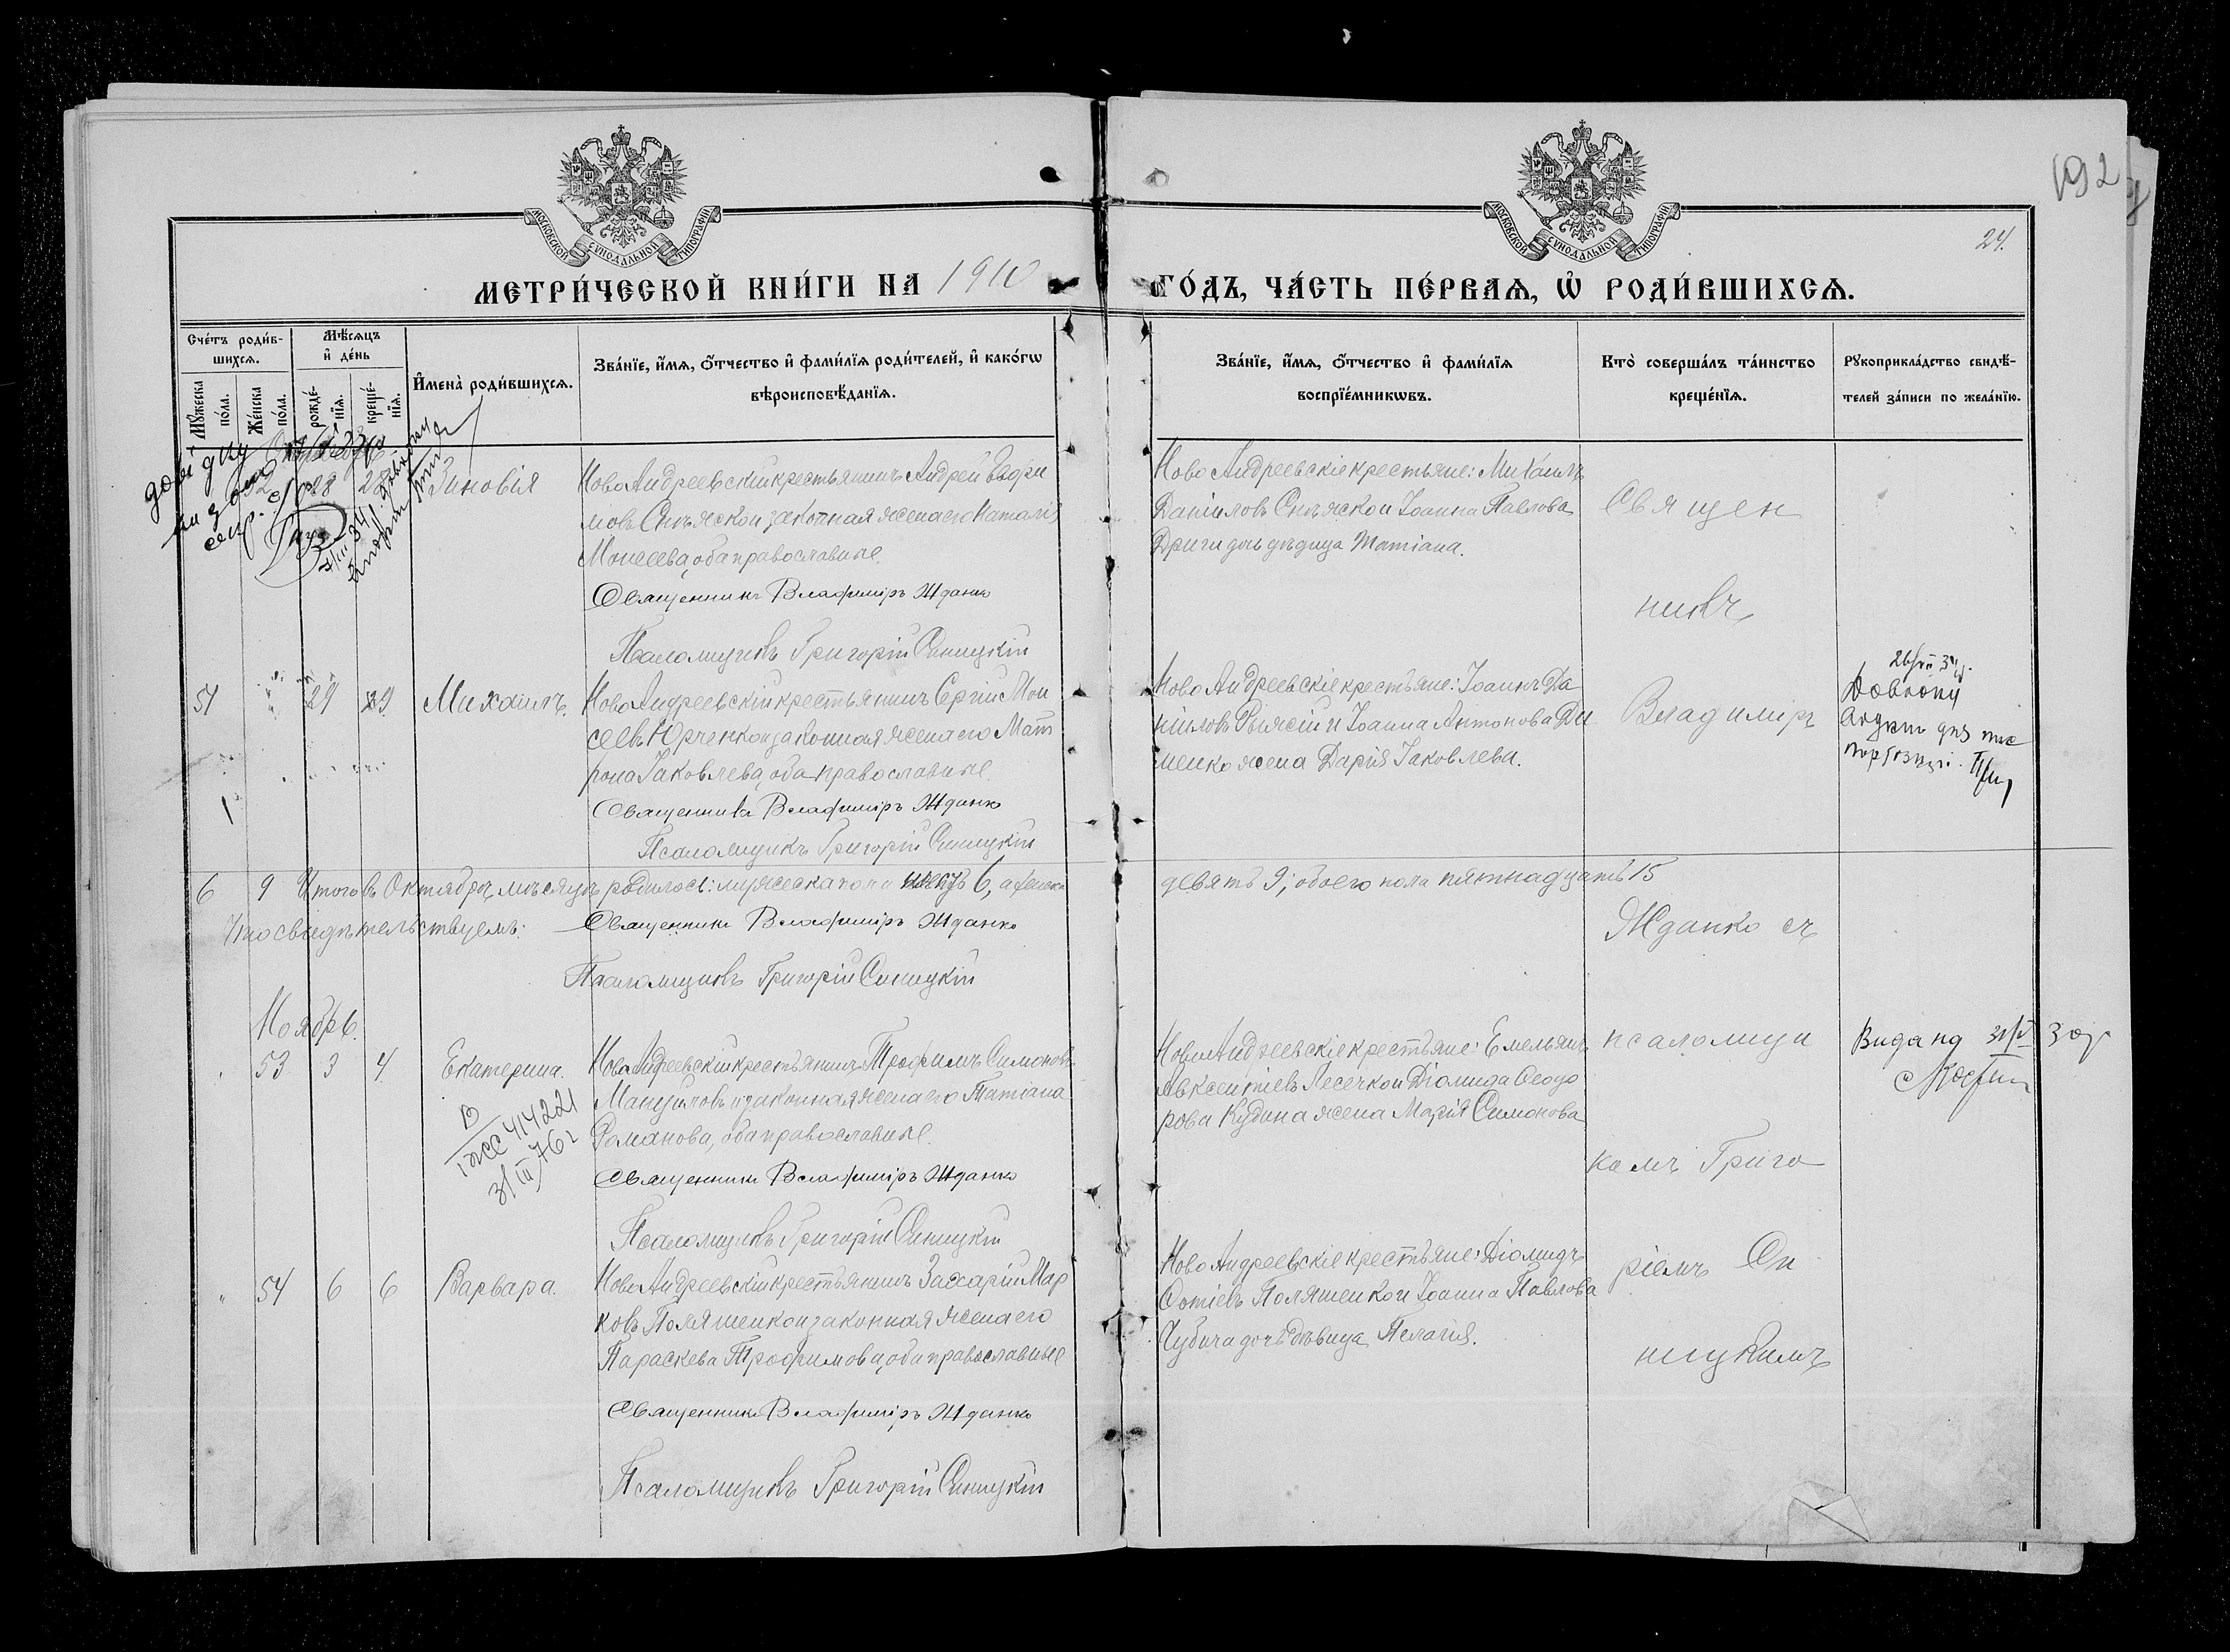 192
МОСКОВСКОЙ СѴНОДАЛЬНОЙ ТИПОГРАФІИ
МОСКОВСКОЙ СѴНОДАЛЬНОЙ ТИПОГРАФІИ
24.
МЕТРИ́ЧЕСКОЙ КНИ́ГИ НА 1910
ГО́ДЪ, ЧА́СТЬ ПЕ́РВАѦ, Ѡ҆ РОДИ́ВШИХСѦ.
Сче́тъ роди́в-
шихсѧ.
Мѣ́сѧцъ
и҆ де́нь
Мꙋ́жеска
по́ла.
Же́нска
по́ла.
рожде́-
нїѧ.
креще́-
нїѧ.
И҆мена̀ роди́вшихсѧ.
Зва́нїе, и҆́мѧ, ѻ҆́тчество и҆ фами́лїѧ роди́телей, и҆ како́гѡ
вѣроисповѣ́данїѧ.
Зва́нїе, и҆́мѧ, ѻ҆́тчество и҆ фами́лїѧ
воспрїе́мникѡвъ.
Кто̀ соверша́лъ та́инство
креще́нїѧ.
Рꙋкоприкла́дство свидѣ́-
телей за́писи по жела́нїю.
28 28 Зиновія
НовоАндреевскій крестьянинъ Андрей
законная жена его Наталія
Моисеева, оба православные.
Священникъ Владиміръ Жданко
Псаломщикъ Григорій Синицкій
Ново Андреевскіе крестьяне: Михаилъ
Даніиловъ и Іоанна Павлова
дочь дѣвица Татіана.
Священ
никъ
51 29 29 Михаилъ.
НовоАндреевскій крестьянинъ Сергій Мои
сеевъ Юрченко и законная жена его Мат
рона Іаковлева, оба православные.
Священникъ Владиміръ Жданко
Псаломщикъ Григорій Синицкій
Ново Андреевскіе крестьяне: Іоаннъ Да
ніиловъ и Іоанна Антонова Ди
менко жена Дарія Іаковлева.
Владиміръ
6 9 Итого въ Октябрѣ мѣсяцѣ родилось: мужеска пола 6, а женска
девять 9; обоего пола пятнадцать 15
Что свидѣтельствуемъ: Священникъ Владиміръ Жданко
Псаломщикъ Григорій Синицкій
Жданко съ
Ноябрь.
53 3 4 Екатерина.
НовоАндреевскій крестьянинъ Трофимъ Симоновъ
и законная жена его Татіана
Романова, оба православные.
Священникъ Владиміръ Жданко
Псаломщикъ Григорій Синицкій
НовоАндреевскіе крестьяне: Емельянъ
Авксентіевъ и Діомида Ѳеодо
рова Кудина жена Марія Симонова
псаломщи
Видано
комъ Григо
54 6 6 Варвара.
НовоАндреевскій крестьянинъ Захарій Мар
ковъ Поляшенко и законная жена его
Параскева Трофимова, оба православные
Священникъ Владиміръ Жданко
Псаломщикъ Григорій Синицкій
Ново Андреевскіе крестьяне: Діомидъ
Фотіевъ Поляшенко и Іоанна Павлова
дочь дѣвица Пелагія.
ріемъ Си
ницкимъ